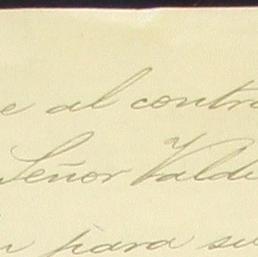 e al contra
Señor Valde
n para su